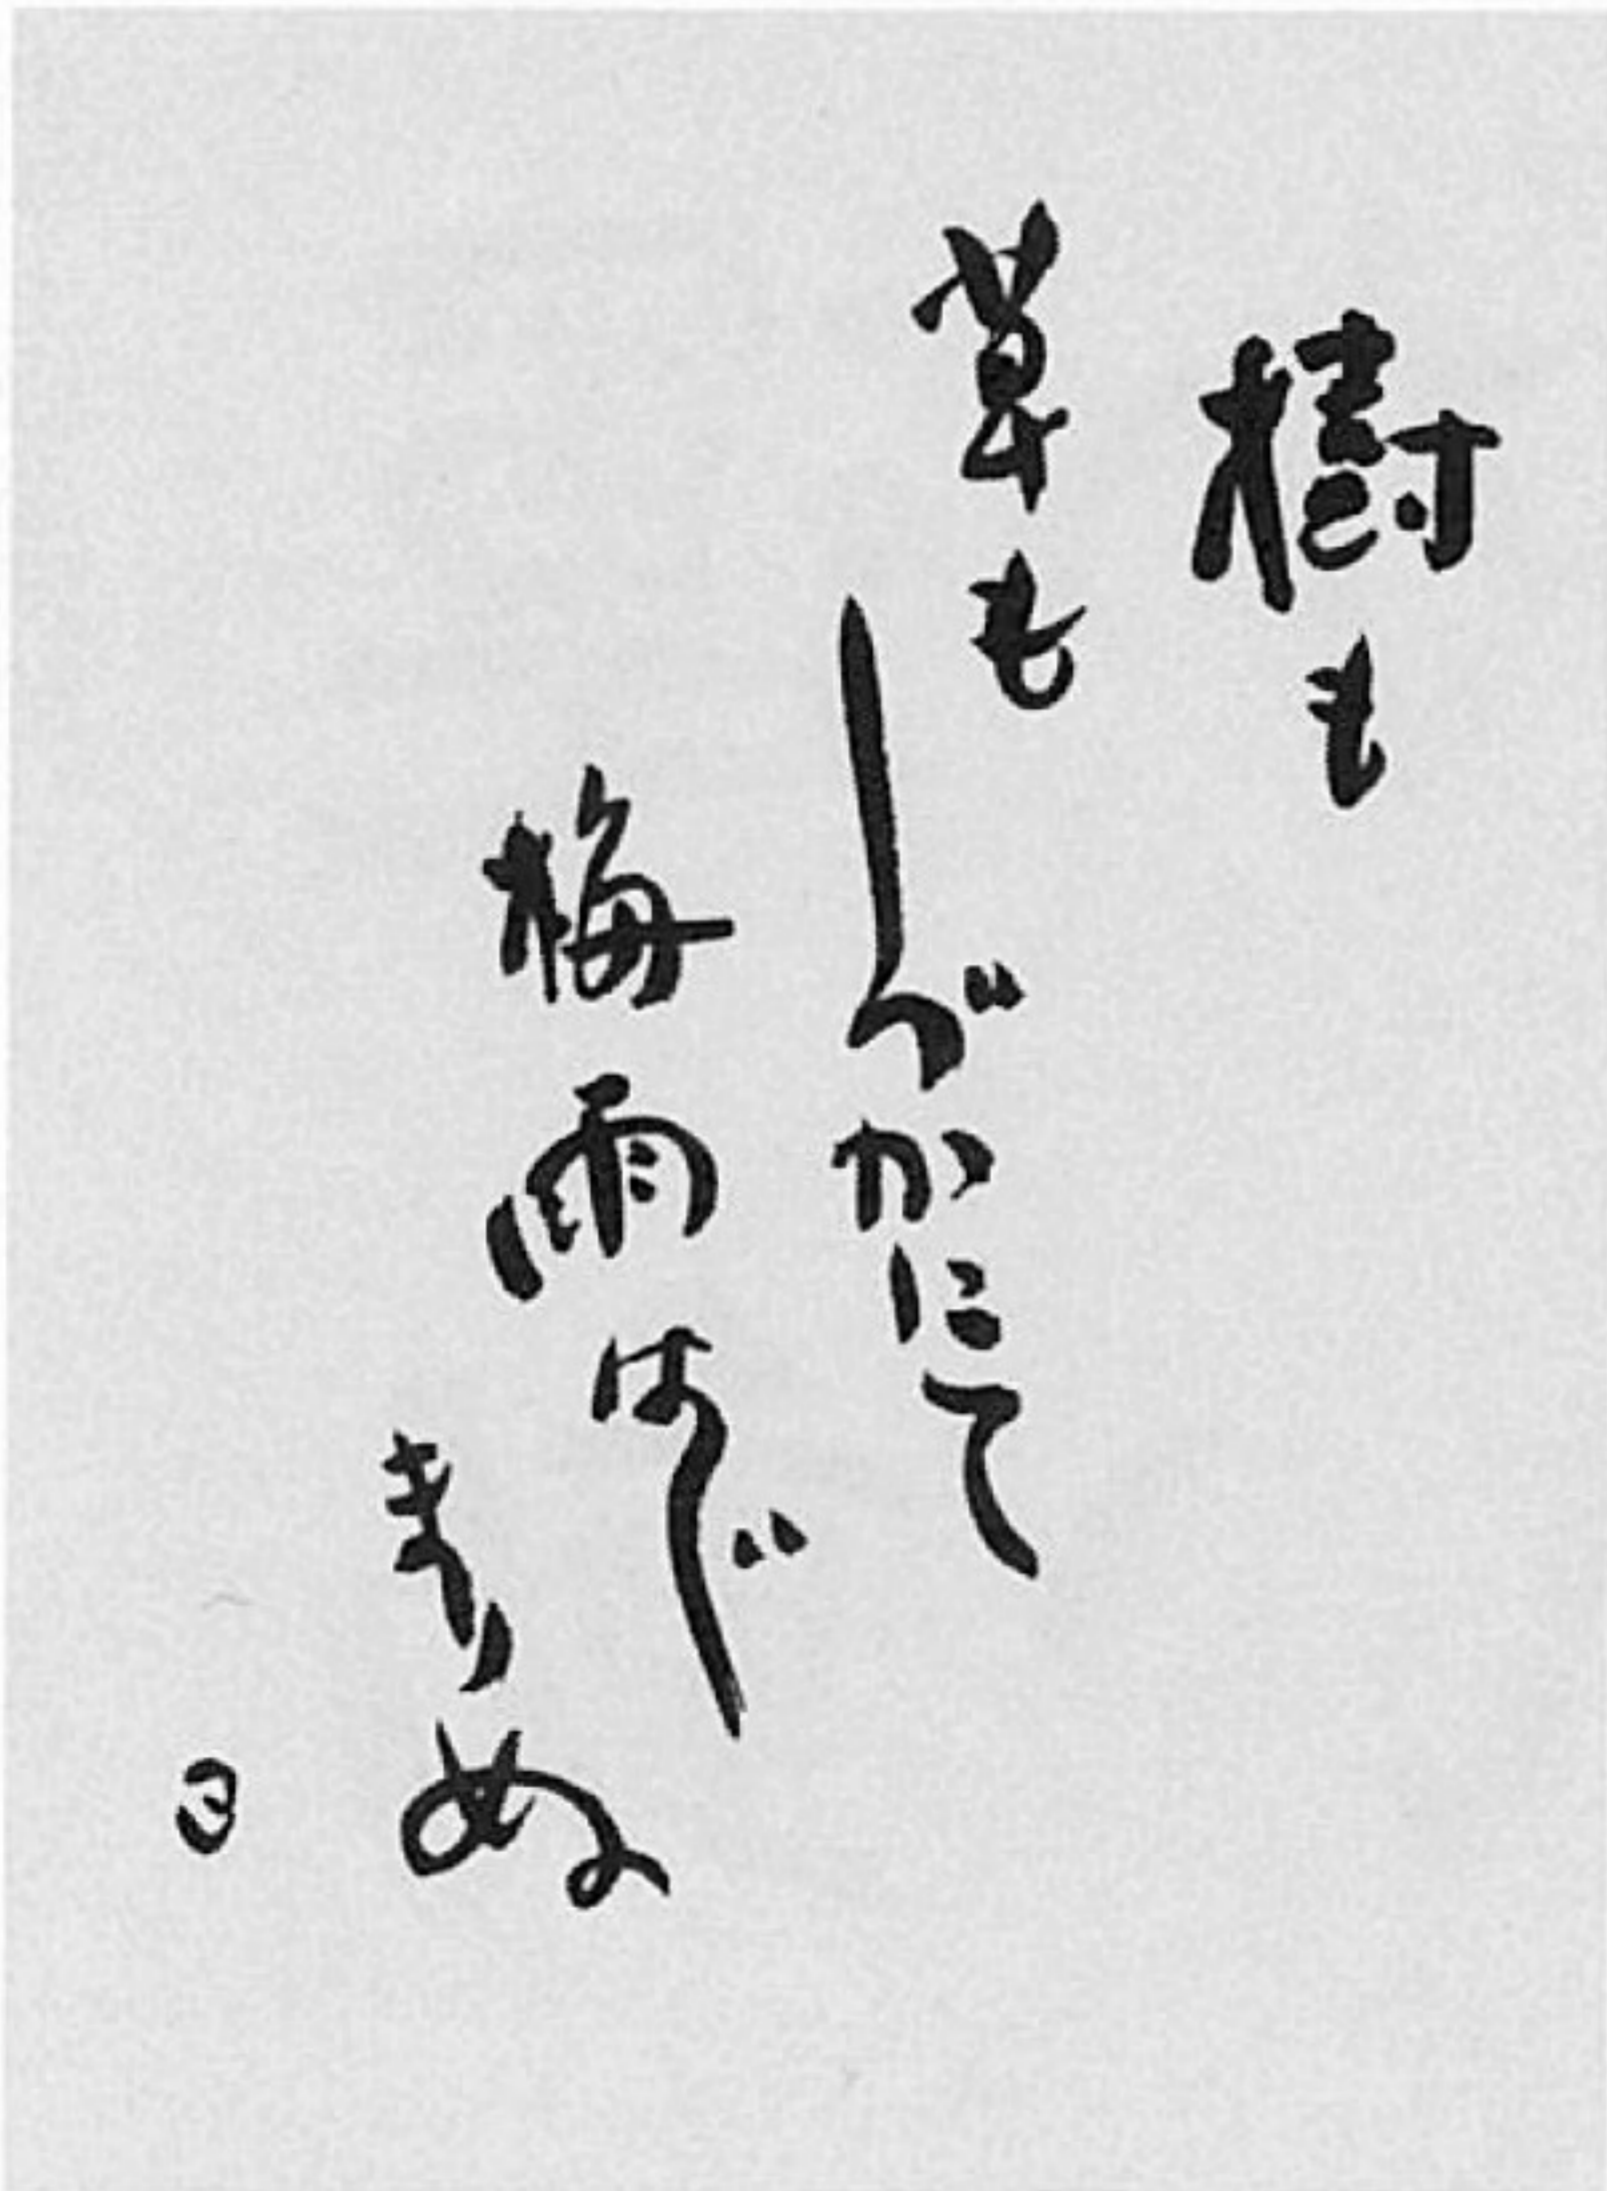 樹も
草も
しづかにて
梅雨はじ
まりぬ